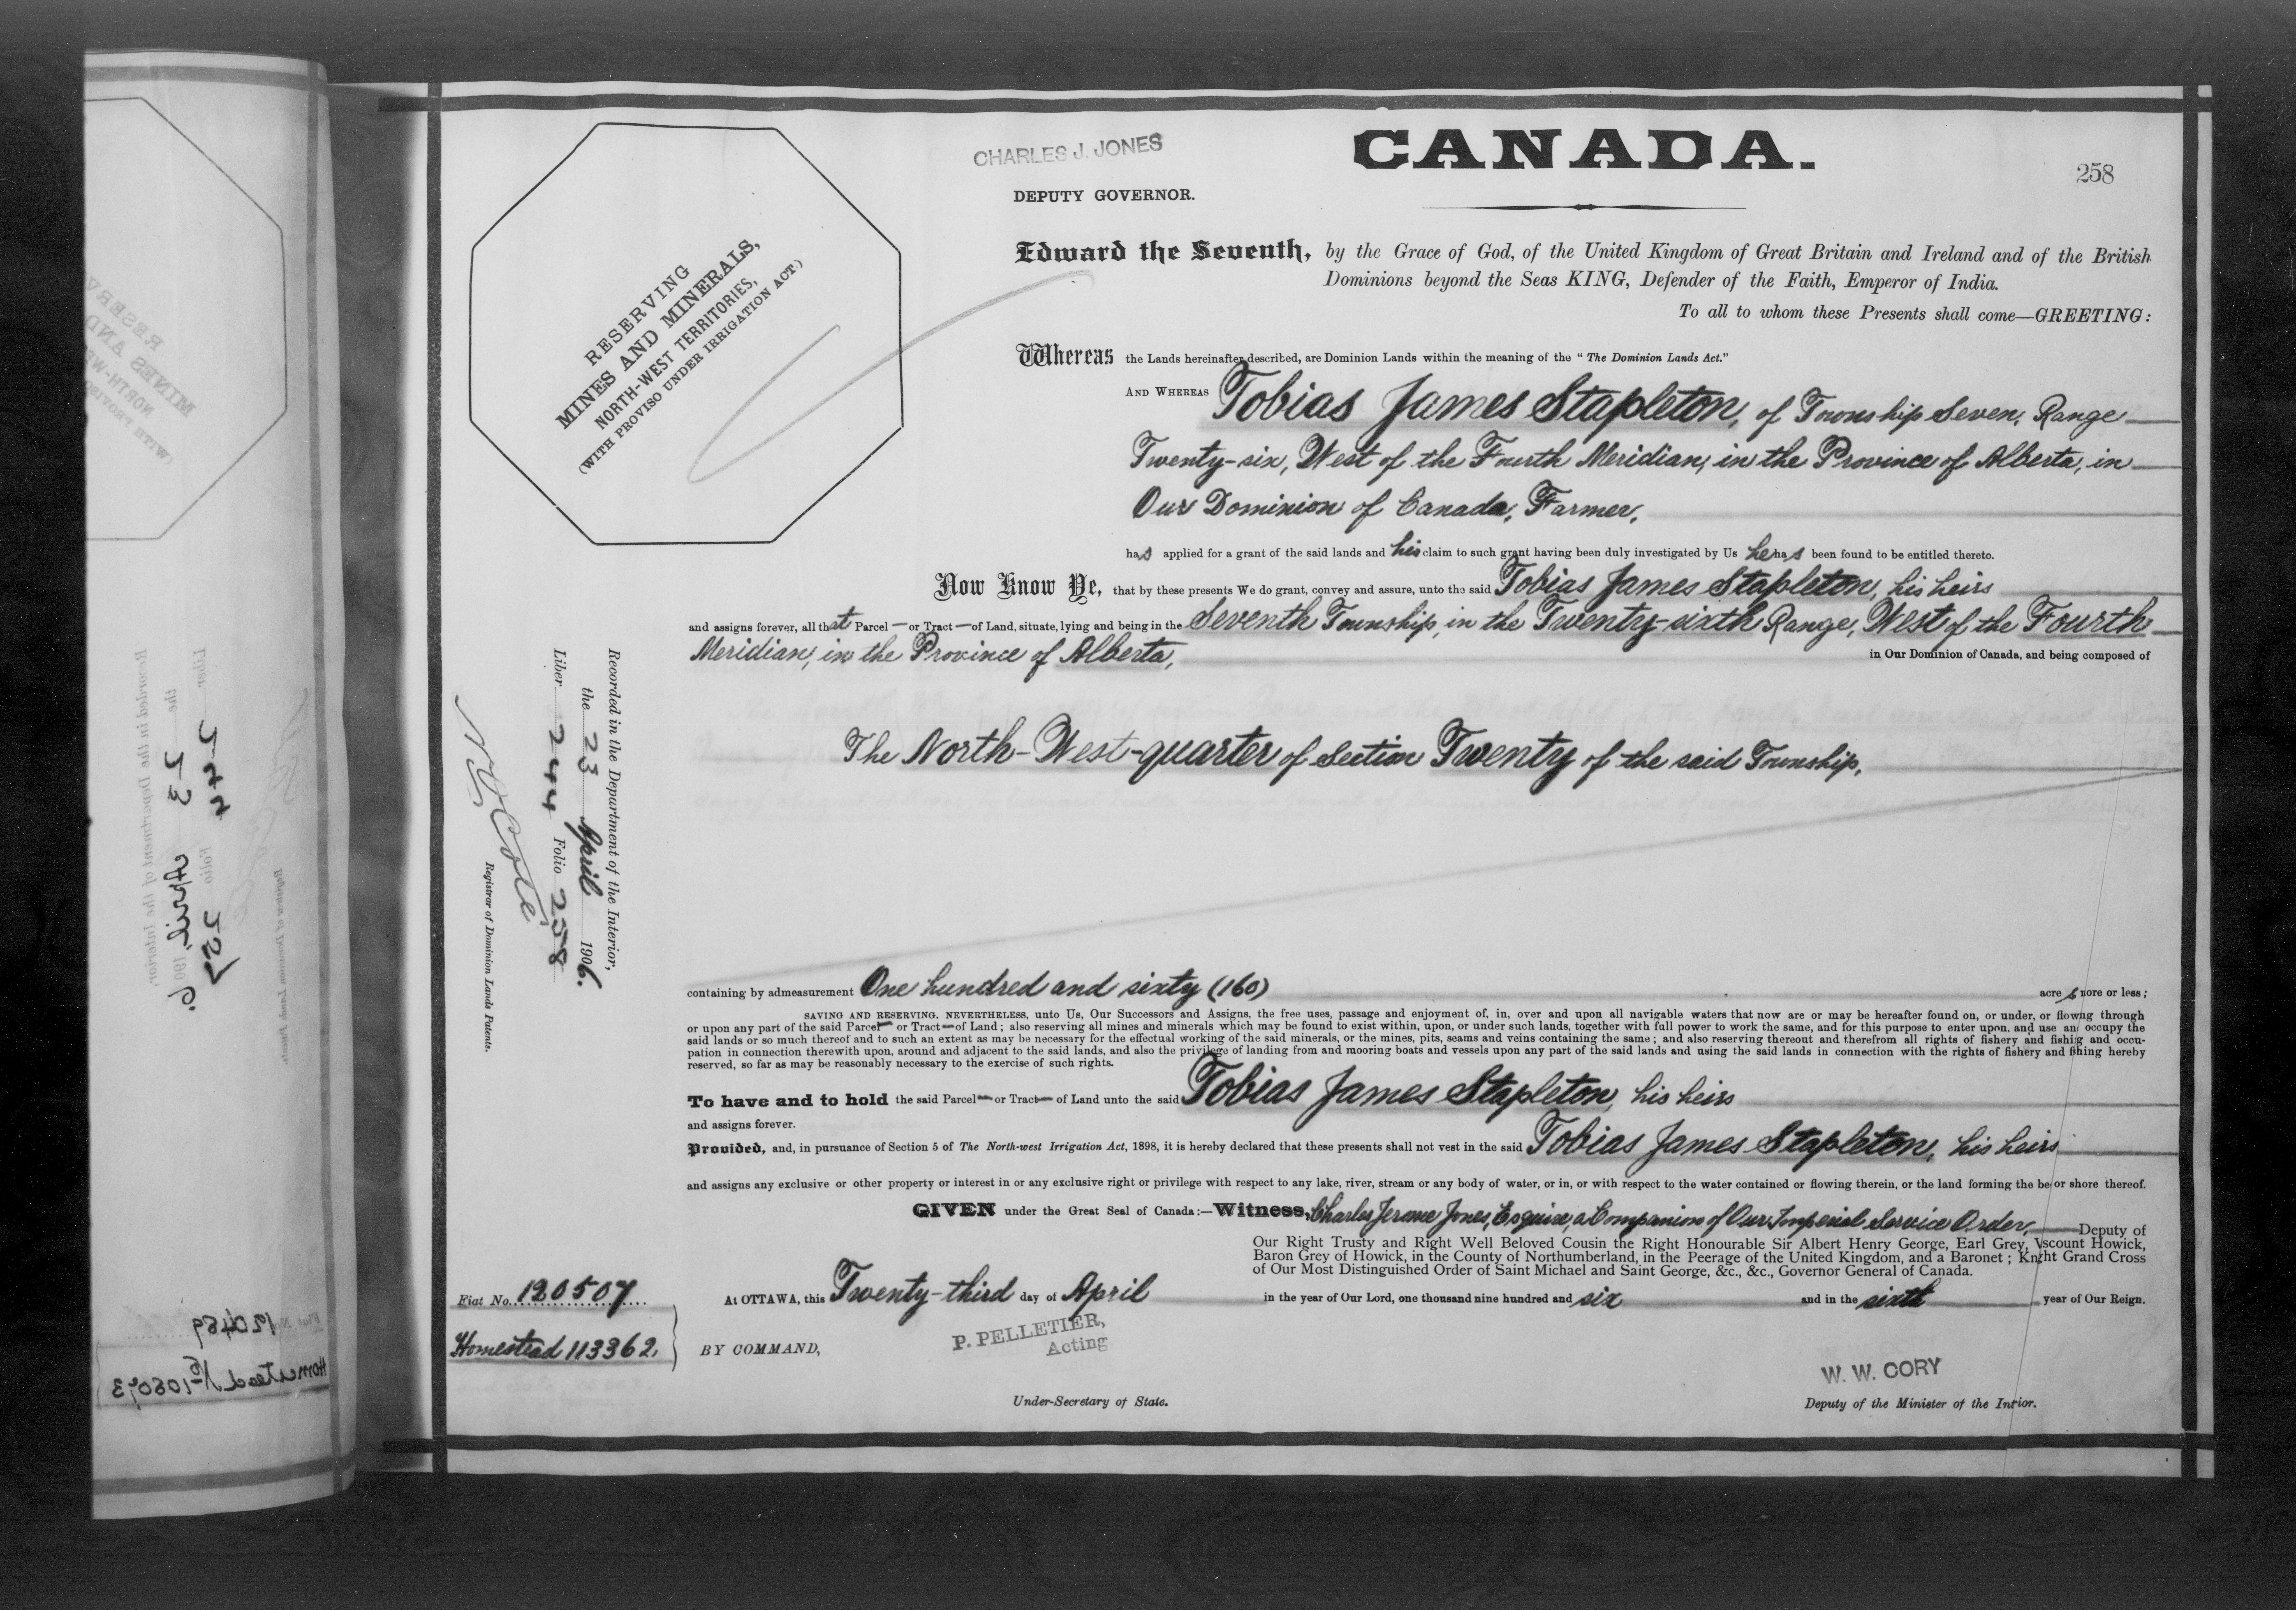 CHARLES J. JONES
DEPUTY GOVERNOR.
CANADA.
258
RESERVING
MINES AND MINERALS,
NORTH-WEST TERRITORIES,
(WITH PROVISO UNDER IRRIGATION ACT.)
Edward the Seventh, by the Grace of God, of the United Kingdom of Great Britain and Ireland and of the British
Dominions beyond the Seas KING, Defender of the Faith, Emperor of India.
To all to whom these Presents shall come—GREETING:
Whereas the Lands hereinafter described, are Dominion Lands within the meaning of the "The Dominion Lands Act."
AND WHEREAS Tobias James Stapleton, of Township Seven, Range
Twenty-six, West of the Fourth Meridian, in the Province of Alberta, in
Our Dominion of Canada, Farmer,
has applied for a grant of the said lands and his claim to such grant having been duly investigated by Us he has been found to be entitled thereto.
Now Know Ye, that by these presents We do grant, convey and assure, unto the said Tobias James Stapleton, his heirs
and assigns forever, all that Parcel — or Tract — of Land, situate, lying and being in the Seventh Township, in the Twenty-sixth Range, West of the Fourth
Meridian, in the Province of Alberta, in Our Dominion of Canada, and being composed of
The North-West-quarter of Section Twenty of the said Township,
containing by admeasurement One hundred and sixty (160) acres more or less;
SAVING AND RESERVING, NEVERTHELESS, unto Us, Our Successors and Assigns, the free uses, passage and enjoyment of, in, over and upon all navigable waters that now are or may be hereafter found on, or under, or flowing through
or upon any part of the said Parcel — or Tract — of Land; also reserving all mines and minerals which may be found to exist within, upon, or under such lands, together with full power to work the same, and for this purpose to enter upon, and use an occupy the
said lands or so much thereof and to such an extent as may be necessary for the effectual working of the said minerals, or the mines, pits, seams and veins containing the same; and also reserving thereout and therefrom all rights of fishery and fishig and occu-
pation in connection therewith upon, around and adjacent to the said lands, and also the privilege of landing from and mooring boats and vessels upon any part of the said lands and using the said lands in connection with the rights of fishery and fihing hereby
reserved, so far as may be reasonably necessary to the exercise of such rights.
To have and to hold the said Parcel — or Tract — of Land unto the said Tobias James Stapleton, his heirs
and assigns forever.
Provided, and, in pursuance of Section 5 of The North-west Irrigation Act, 1898, it is hereby declared that these presents shall not vest in the said Tobias James Stapleton, his heirs
and assigns any exclusive or other property or interest in or any exclusive right or privilege with respect to any lake, river, stream or any body of water, or in, or with respect to the water contained or flowing therein, or the land forming the be or shore thereof.
GIVEN under the Great Seal of Canada:—Witness, Charles Jerome Jones, Esquire, a Companion of Our Imperial Service Order, Deputy of
Our Right Trusty and Right Well Beloved Cousin the Right Honourable Sir Albert Henry George, Earl Grey, Vscount Howick,
Baron Grey of Howick, in the County of Northumberland, in the Peerage of the United Kingdom, and a Baronet; Knght Grand Cross
of Our Most Distinguished Order of Saint Michael and Saint George, &c., &c., Governor General of Canada.
At OTTAWA, this Twenty-third day of April in the year of Our Lord, one thousand nine hundred and six and in the sixth year of Our Reign.
Fiat No. 120507
Homestead 113362.
BY COMMAND,
P. PELLETIER,
Acting
Under-Secretary of State.
W. W. CORY
Deputy of the Minister of the Intrior.
Recorded in the Department of the Interior,
the 23 April 1906.
Liber 244 Folio 258
Registrar of Dominion Lands Patents.
RESERV
MINES AND
NORTH-WE
(WITH PROVISO
Recorded in the Department of the Interior,
the 23 April 1906.
Liber 244 Folio 257
Registrar of Dominion Lands Patents.
120489
Homestead No 108073